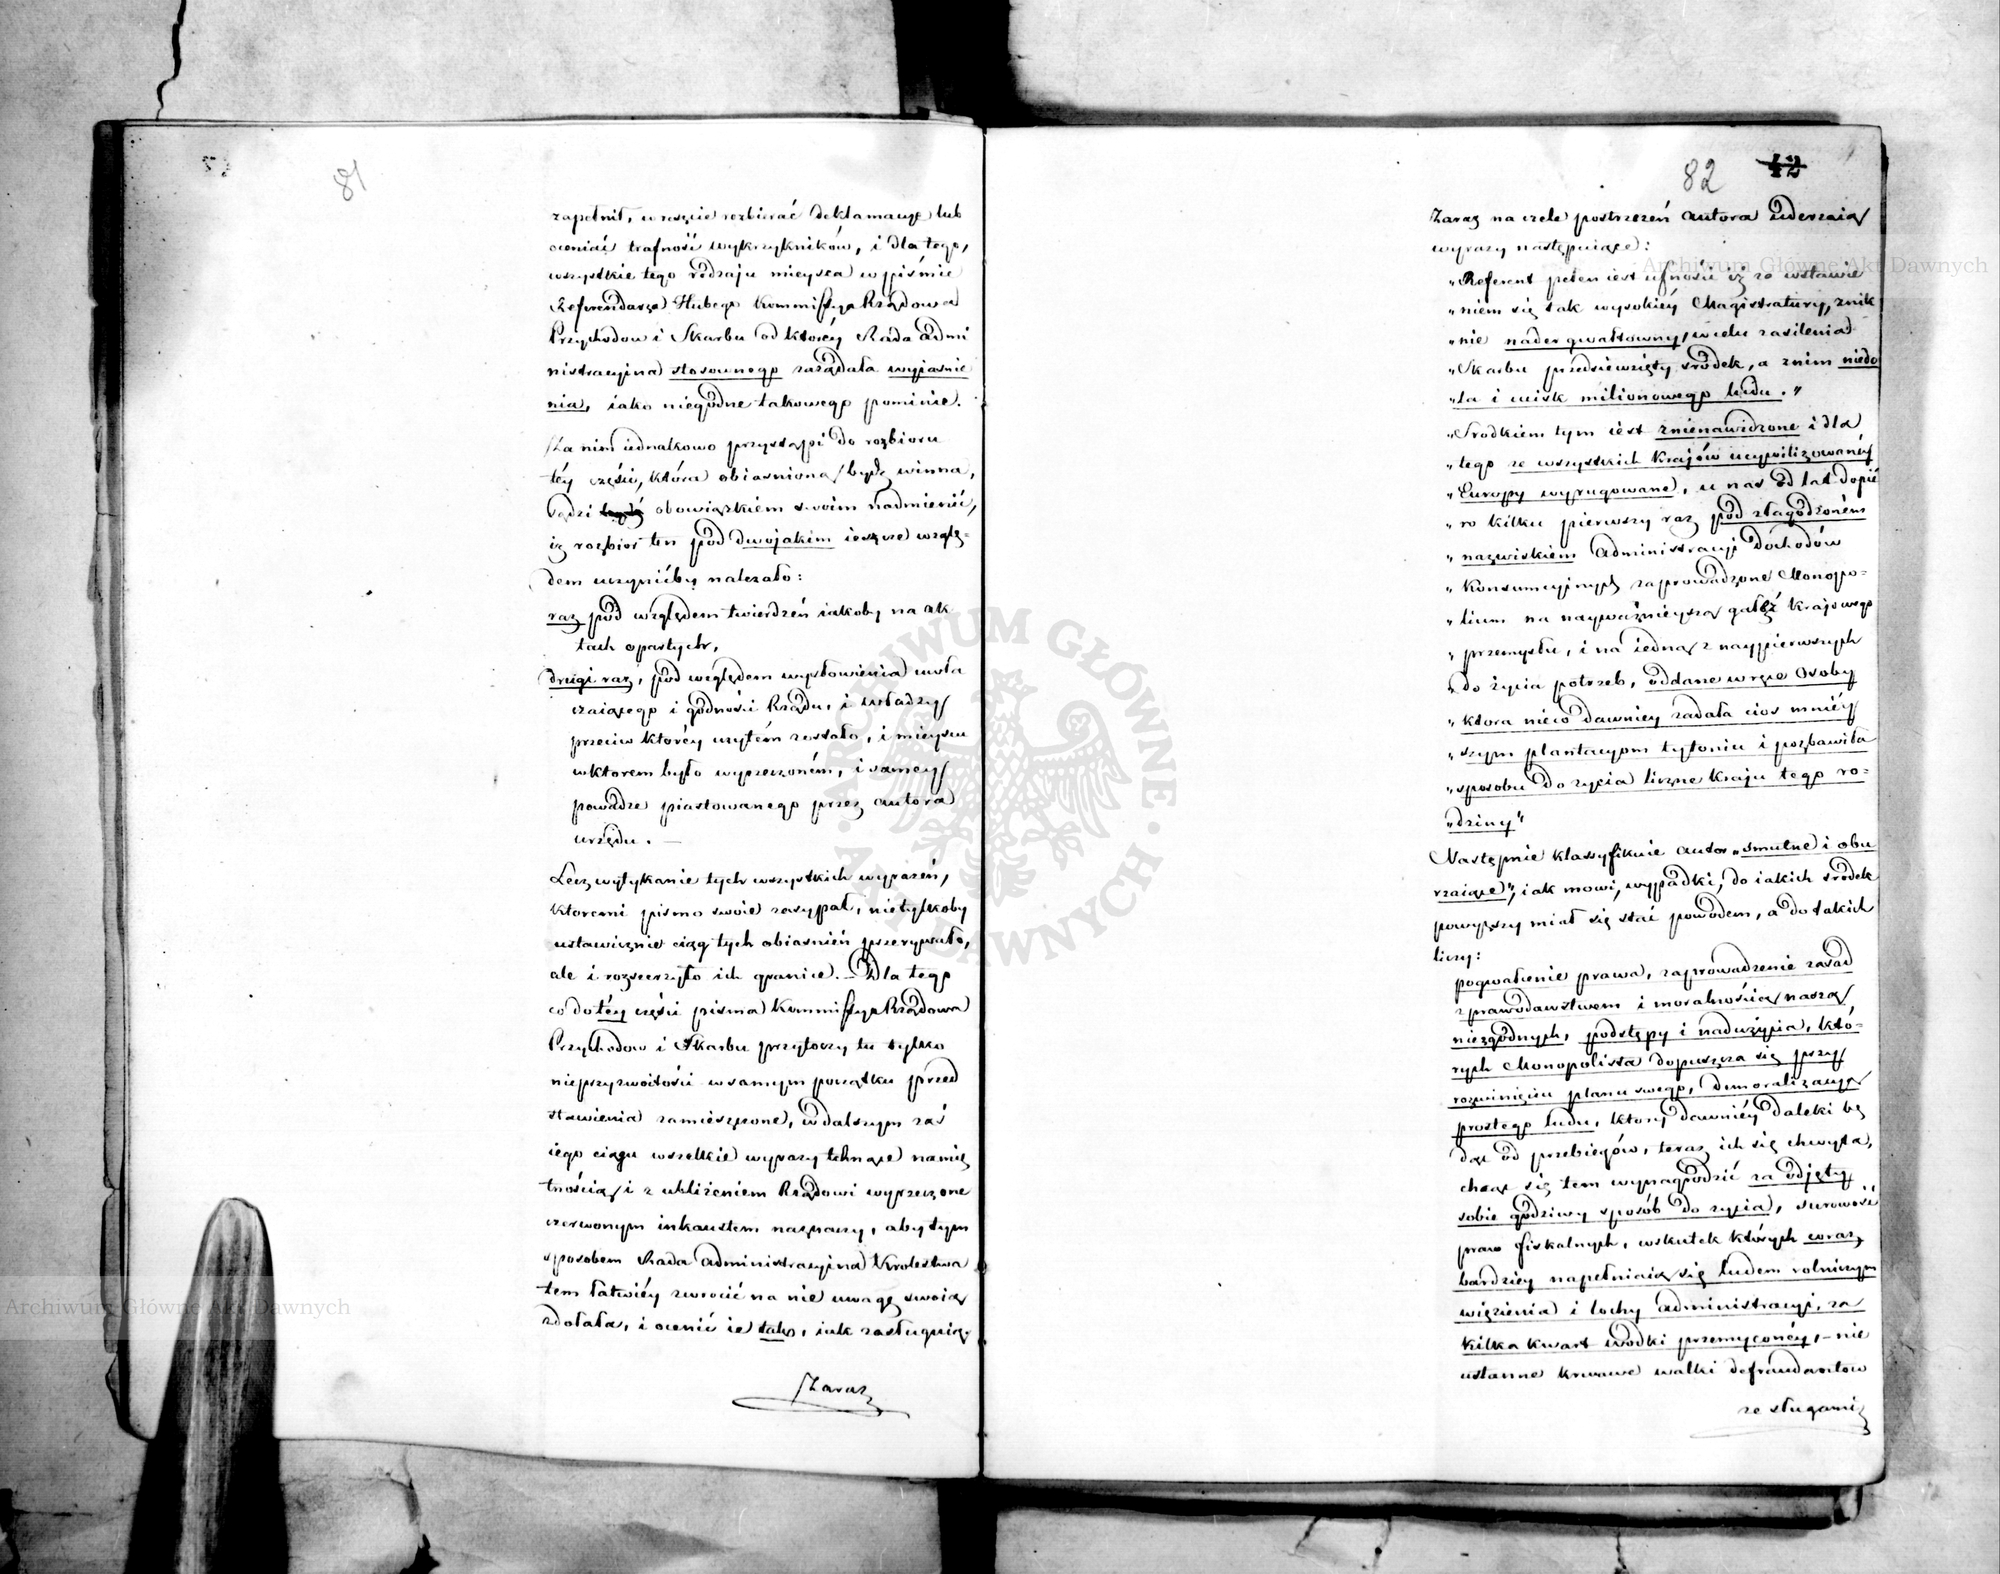 81
zapełnił, wreszcie rozbierać deklamacye lub
oceniać trafność wykrzykników, i dla tego,
wszystkie tego rodzaju mieysca w piśmie
Referendarza Hubego Kommissya Rządowa
Przychodow i Skarbu od ktorey Rada Admi
nistracyina stosownego zażądała wyjaśnie
nia, iako niegodne takowego pominie.
Za nim iednakowo przystąpi do rozbioru
téy części, która obiasniona bydź winna,
sądzi obowiązkiem swoim nadmienić,
iż rozbior ten pod dwojakim ieszcze wzglę-
dem uczynićby należało:
raz pod względem twierdzeń iakoby na ak
tach opartych,
drugi raz, pod względem wysłowienia uwła
czaiącego i godności Rządu, i władzy
przeciw ktorey użytém zostało, i mieysca
w ktorem było wyrzeczoném, i samey
powadze piastowanego przez autora
urzędu. —
Lecz wytykanie tych wszystkich wyrażeń,
ktoremi pismo swoie zasypał, nietylkoby
ustawicznie ciąg tych obiasnień przerywało,
ale i rozszerzyło ich granice. — Dla tego
co do téy części pisma Kommissya Rządowa
Przychodow i Skarbu przytoczy tu tylko
nieprzyzwoitości w samym początku przed
stawienia zamieszczone, w dalszym zaś
iego ciągu wszelkie wyrazy tchnące namię
tnością i z ubliżeniem Rządowi wyrzeczone
czerwonym inkaustem naznaczy, aby tym
sposobem Rada Administracyjna Krolestwa
tem łatwiéy zwrócić na nie uwagę swoią
zdołała, i ocenić ie tak, iak zasługuią.
Zaraz
82 42
Zaraz na czele postrzeżeń autora uderzaią
wyrazy następuiące:
„Referent pełen iest ufności iż za wstawie
„niem się tak wysokiéy Magistratury, znik
„nie nader gwałtowny w celu zasilenia
„Skarbu przedsiewzięty srodek, a z nim niedo
„la i ucisk milionowego ludu."
„Srodkiem tym iest znienawidzone i dla
„tego ze wszystkich Krajów ucywilizowanéy
„Europy wyrugowane, u nas od lat dopie
„ro kilku pierwszy raz pod złagodzoném
„nazwiskiem Administracyi dochodów
„Konsumcyjnych zaprowadzone Monopo-
„lium na nayważnieyszą gałęź Krajowego
„przemysłu, i na iedną z naypierwszych
„do życia potrzeb, oddane w ręce Osoby
„ktora nieco dawniey zadała cios mniéy
„szym plantacyom tytoniu i pozbawiła
„sposobu do życia liczne Kraju tego ro-
„dziny"
Następnie klassyfikuie autor „smutne i obu
rzaiące", iak mowi, wypadki, do iakich srodek
powyższy miał się stać powodem, a do takich
liczy:
pogwałcenie prawa, zaprowadzenie zasad
z prawodawstwem i moralnością naszą
niezgodnych, podstępy i nadużycia, któ-
rych Monopolista dopuszcza się przy
rozwinięciu planu swego, demoralizacyę
prostego ludu, ktory dawniéy daleki bę
dąc od przebiegów, teraz ich się chwyta,
chcąc się tem wynagrodzić za odjęty
sobie godziwy sposób do życia, surowość
praw fiskalnych, wskutek których coraz
bardziey napełniaią się ludem rolniczym
więzienia i lochy administracyi, za
kilka kwart wodki przemyconéy, — nie
ustanne krwawe walki defraudantow
ze sługami
Archiwum Główne Akt Dawnych
Archiwum Główne Akt Dawnych
ARCHIWUM GŁÓWNE AKT DAWNYCH